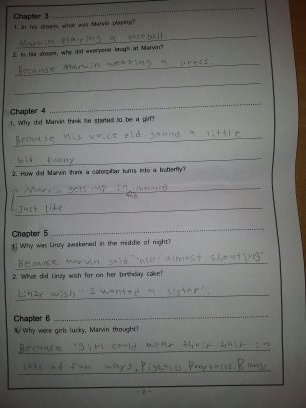 Chapter 3
1. In his dream, what was Marvin playing?
Marvin playing a baseball
2. In his dream, why did everyone laugh at Marvin?
Because Marvin wearing a dress.
Chapter 4
1. Why did Marvin think he started to be a girl?
Because His voice did sound a little
bit funny
2. How did Marvin think a caterpillar turns into a butterfly?
Marvin gets up in
Just like
Chapter 5
1. Why was Linzy awakened in the middle of night?
Because marvin said "no" almost shouting
2. What did Linzy wish for on her birthday cake?
Linzy wish "I wanted a sister".
Chapter 6
1. Why were girls lucky, Marvin thought?
Because girl could wear their hair in
lots of fun ways. Pigtails Ponytails. Bangs
- 2 -